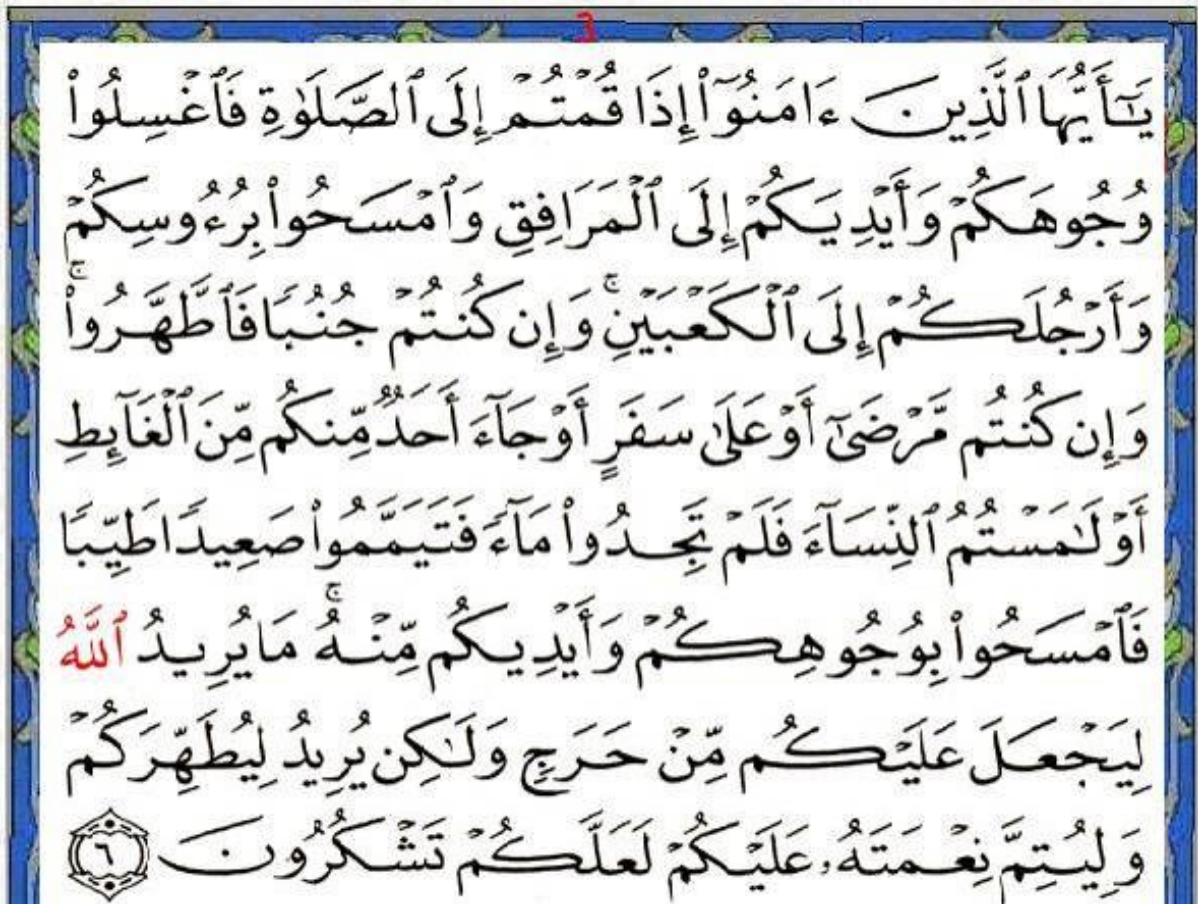 يَٰٓأَيُّهَا ٱلَّذِينَ ءَامَنُوٓا۟ إِذَا قُمْتُمْ إِلَى ٱلصَّلَوٰةِ فَٱغْسِلُوا۟
وُجُوهَكُمْ وَأَيْدِيَكُمْ إِلَى ٱلْمَرَافِقِ وَٱمْسَحُوا۟ بِرُءُوسِكُمْ
وَأَرْجُلَكُمْ إِلَى ٱلْكَعْبَيْنِ ۚ وَإِن كُنتُمْ جُنُبًا فَٱطَّهَّرُوا۟ ۚ
وَإِن كُنتُم مَّرْضَىٰٓ أَوْ عَلَىٰ سَفَرٍ أَوْ جَآءَ أَحَدٌ مِّنكُم مِّنَ ٱلْغَآئِطِ
أَوْ لَٰمَسْتُمُ ٱلنِّسَآءَ فَلَمْ تَجِدُوا۟ مَآءً فَتَيَمَّمُوا۟ صَعِيدًا طَيِّبًا
فَٱمْسَحُوا۟ بِوُجُوهِكُمْ وَأَيْدِيكُم مِّنْهُ ۚ مَا يُرِيدُ ٱللَّهُ
لِيَجْعَلَ عَلَيْكُم مِّنْ حَرَجٍ وَلَٰكِن يُرِيدُ لِيُطَهِّرَكُمْ
وَلِيُتِمَّ نِعْمَتَهُۥ عَلَيْكُمْ لَعَلَّكُمْ تَشْكُرُونَ ٦